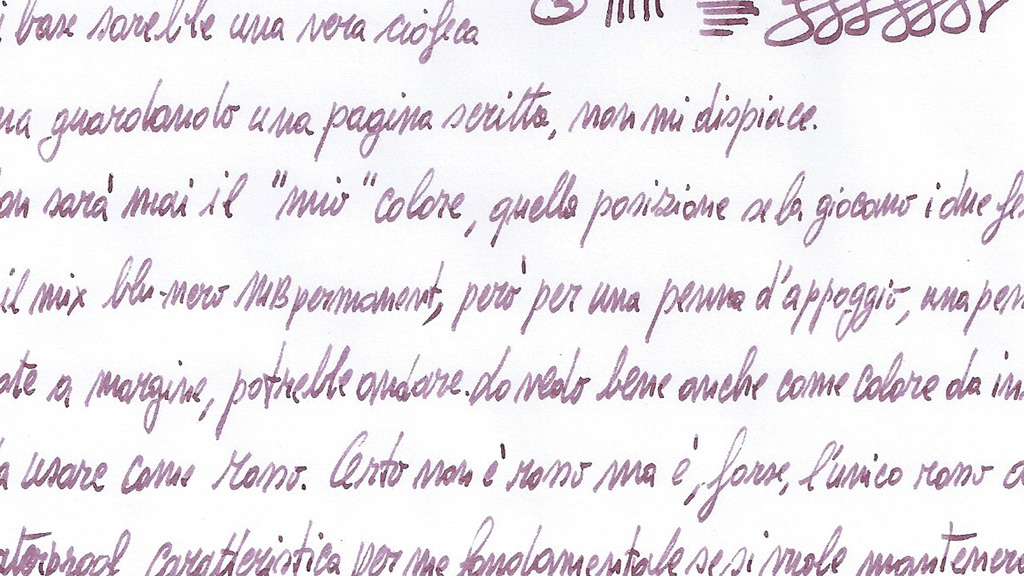 i base sarebbe una vera ciofeca
ma guardando una pagina scritta, non mi dispiace.
on sarà mai il "mio" colore, quella posizione se la giocano i due
il mix blu-nero MB permanent, però per una penna d'appoggio, una pen
ote a margine, potrebbe andare. Lo vedo bene anche come colore da in
da usare come rosso. Certo non è rosso ma è, forse, l'unico rosso
aterproof caratteristica per me fondamentale se si vuole mantenere